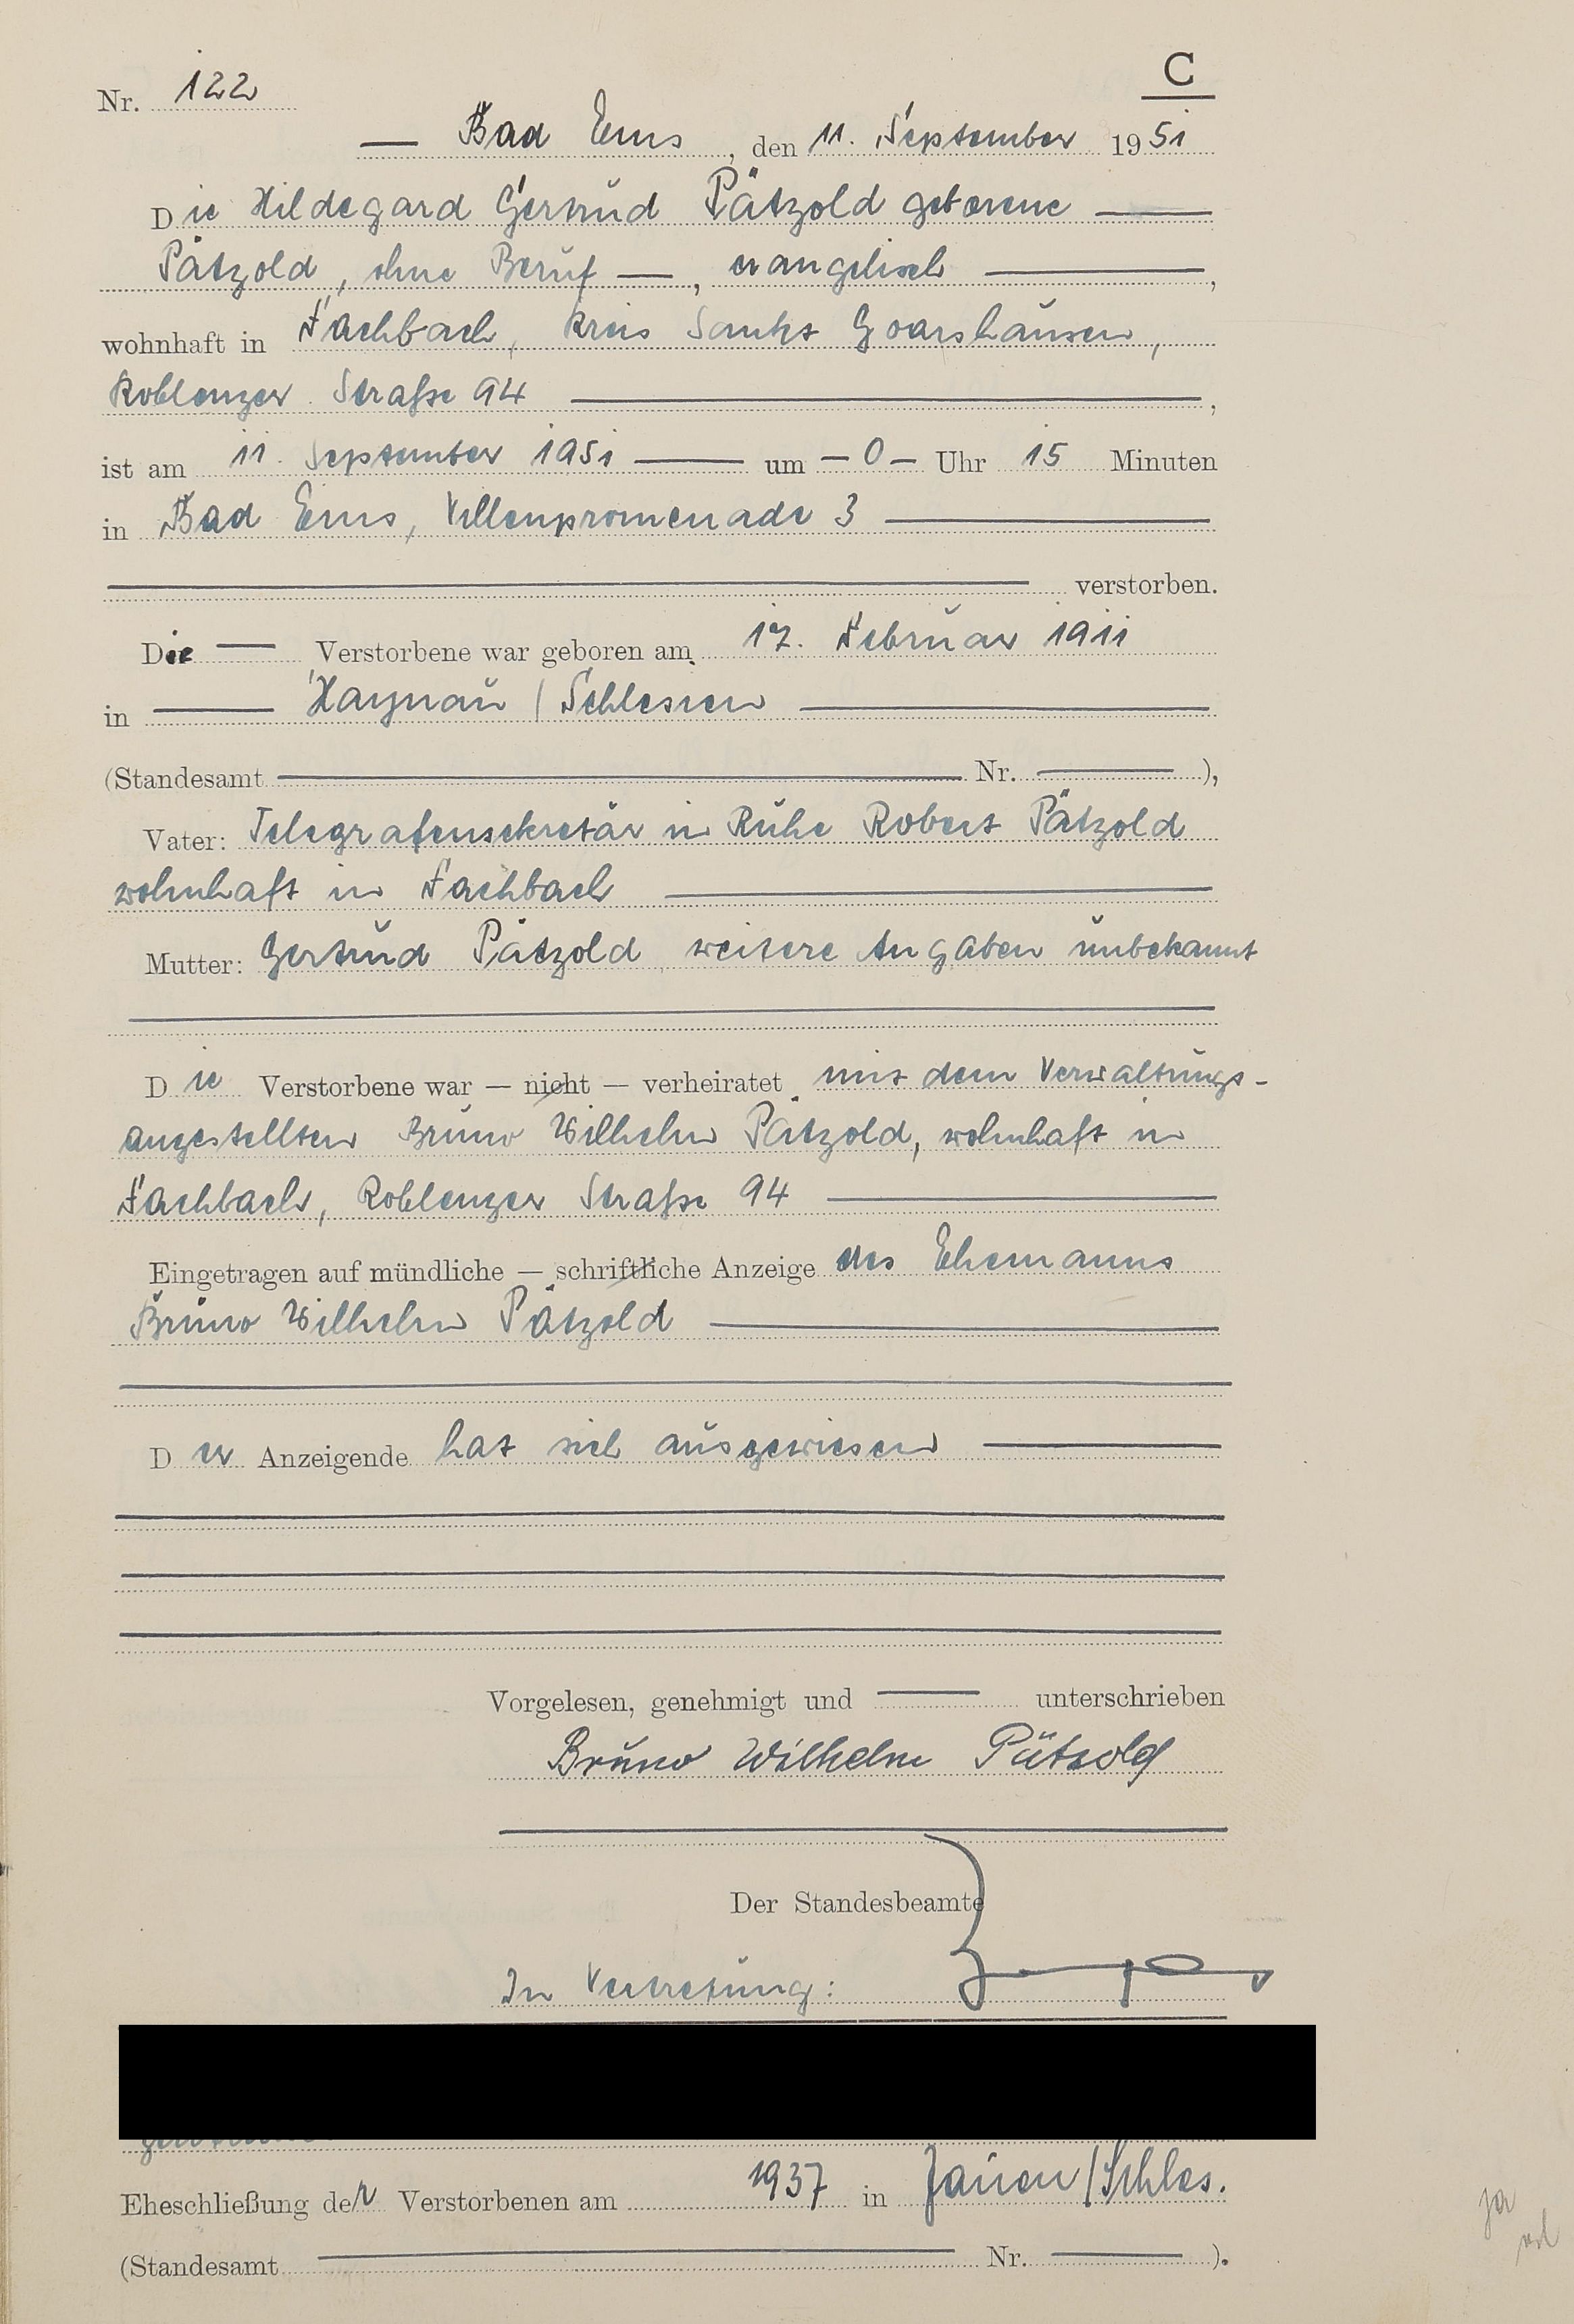 C
Nr. 122
— Bad Ems, den 11. September 1951
Die Hildegard Gertrud Pätzold geborene —
Pätzold, ohne Beruf —, evangelisch —,
wohnhaft in Fachbach, Kreis Sankt Goarshausen,
Koblenzer Straße 94 —,
ist am 11. September 1951 — um — 0 — Uhr 15 Minuten
in Bad Ems, Villenpromenade 3 —
— verstorben.
Die — Verstorbene war geboren am 17. Februar 1911
in — Haynau / Schlesien —
(Standesamt — Nr. — ),
Vater: Telegrafensekretär in Ruhe Robert Pätzold
wohnhaft in Fachbach —
Mutter: Gertrud Pätzold, weitere Angaben unbekannt
Die Verstorbene war — nicht — verheiratet mit dem Verwaltungs-
angestellten Bruno Wilhelm Pätzold, wohnhaft in
Fachbach, Koblenzer Straße 94 —
Eingetragen auf mündliche — schriftliche Anzeige des Ehemanns
Bruno Wilhelm Pätzold —
Der Anzeigende hat sich ausgewiesen —
Vorgelesen, genehmigt und — unterschrieben
Bruno Wilhelm Pätzold
Der Standesbeamte
In Vertretung:
Eheschließung der Verstorbenen am 1937 in Jauer / Schles.
(Standesamt — Nr. — ).